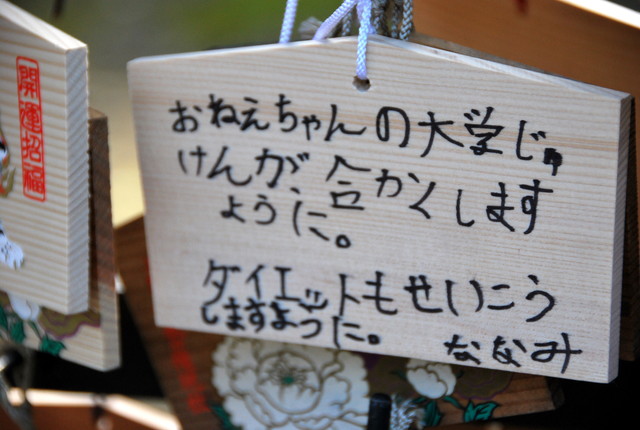 開運招福
おねえちゃんの大学じゅ
けんが合かくします
ように。
ダイエットもせいこう
しますように。
ななみ